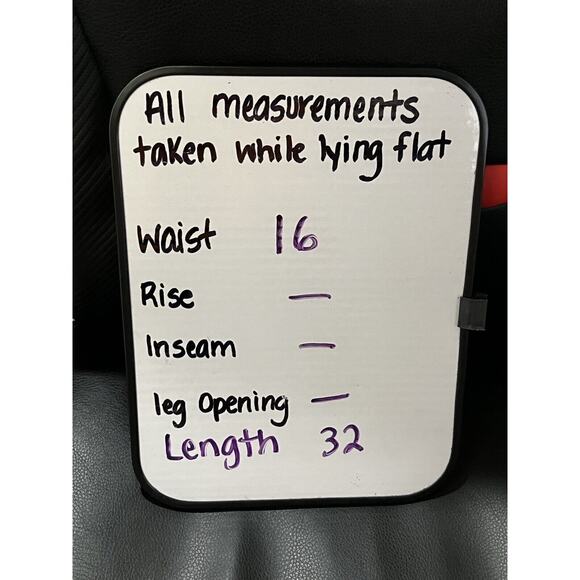 All measurements
taken while lying flat
Waist 16
Rise —
Inseam —
leg Opening —
Length 32